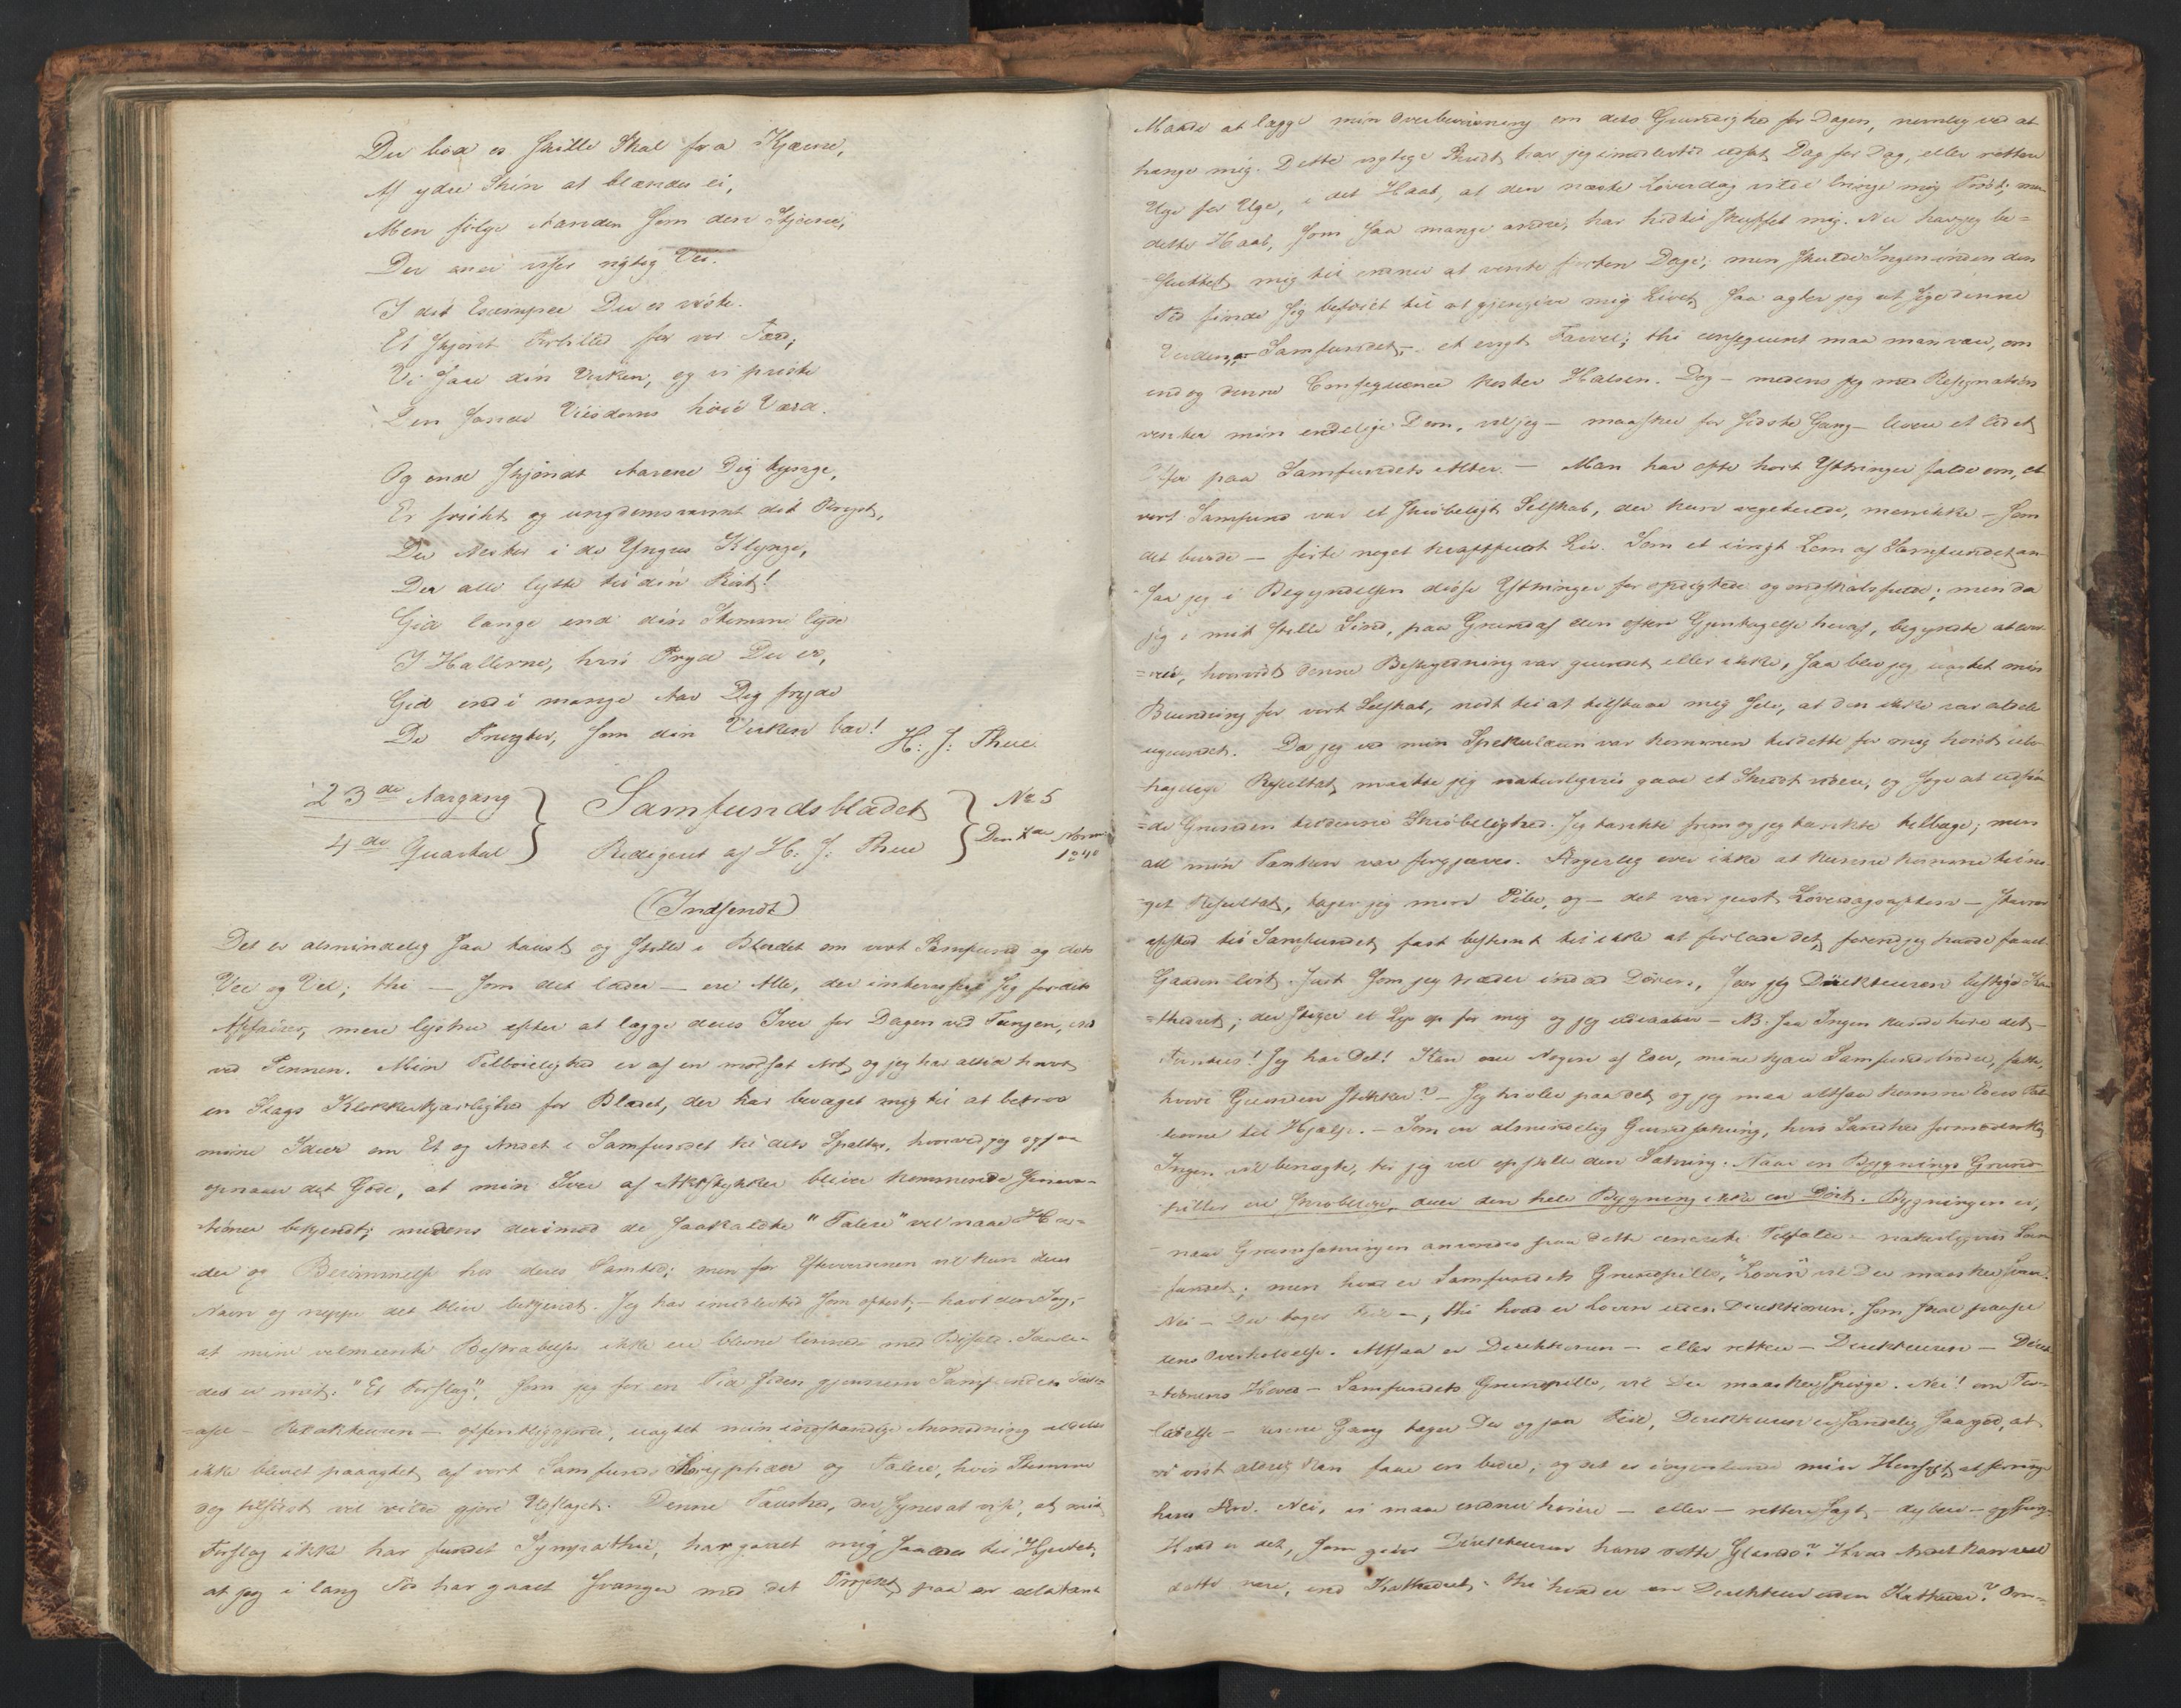 Du bød os skille Skal fra Kjærne,
Af ydre Skin at blændes ei,
Men følge Aanden som den Stjerne,
Der ene viser rigtig Vei.
I dit Exempel Du os viste
Et skjønt Forbilled for vor Færd;
Vi saae din Virken, og vi priste
Den sande Viisdoms høie Værd.
Og end skjøndt Aarene Dig tynge,
Er friskt og ungdomsvarmt dit Bryst,
Du Nestor i de Yngres Klynge,
Der alle lytte til din Røst!
Gid længe end din Stemme lyde
I Hallerne, hvis Pryd Du er,
Gid end i mange Aar Dig fryde
De Frugter, som din Virken bær!
H: J: Thue.
23de Aargang
4de Quartal
Samfundsbladet
Redigeret af H: J: Thue
No 5
Den 7de Novem
1840
(Indsendt)
Det er almindelig saa taust og stille i Bladet om vort Samfund og dets
Vee og Vel; thi — som det lader — ere Alle, der interessere sig for dets
Affairer, mere lystne efter at lægge deres Iver for Dagen ved Tungen, end
ved Pennen. Min Tilbøielighed er af en modsat Art, og jeg har altid havt
en Slags Klokkerkjærlighed for Bladet, der har bevæget mig til at betroe
mine Ideer om Et og Andet i Samfundet til dets Spalter, hvorved jeg ogsaa
opnaaer det Gode, at min Iver af Aktstykker bliver kommende Genera-
tioner bekjendt; medens derimod de saakaldte "Talere" vel naae Hæ-
der og Berømmelse hos deres Samtid; men for Efterverdenen vil kun deres
Navn og neppe det blive bekjendt. Jeg har imidlertid som oftest — havt den Sorg,
at mine velmeente Bestræbelser ikke ere blevne lønnede med Bifald. Saale-
des er mit: "Et Forslag", som jeg for en Tid siden gjennem Samfundets
— Redakteuren — offentliggjorde, uagtet min indstændige Anmodning aldeles
ikke blevet paaagtet af vort Samfunds Koryphæer og Talere, hvis Stemme
dog tilsidst vel vilde gjøre Udslaget. Denne Taushed, der synes at vise, at mit
Forslag ikke har fundet Sympathie, har gaaet mig saaledes til Hjertet,
at jeg i lang Tid har gaaet svanger med det Projekt paa en eclatant
Maade at lægge min Overbeviisning om dets Grundighed for Dagen, nemlig ved at
hænge mig. Dette vigtige Skridt har jeg imidlertid udsat Dag for Dag, eller rettere
Uge for Uge, i det Haab, at den næste Løverdag vilde bringe mig Trøst; men
dette Haab, som saa mange andre, har hidtil skuffet mig. Nu har jeg be-
sluttet mig til endnu at vente fjorten Dage; men skulde Ingen inden den
Tid finde sig beføiet til at gjengive mig Livet, saa agter jeg at sige denne
Verden, — Samfundet, — et evigt Farvel; thi consequent maa man være, om
endog denne Consequence koster Halsen. Dog — medens jeg med Resignation
venter min endelige Dom, vil jeg — maaskee for sidste Gang — levere et lidet
Offer paa Samfundets Alter. — Man har ofte hørt Yttringer falde om, at
vort Samfund var et skrøbeligt Selskab, der kun vegeterede, men ikke — som
det burde — førte noget kraftfuldt Liv. Som et ungt Lem af Samfundet an-
saa jeg i Begyndelsen disse Yttringer for opdigtede og ondskabsfulde; men da
jeg i mit stille Sind, paa Grund af den oftere Gjentagelse heraf, begyndte at over-
=veie, hvorvidt denne Beskyldning var grundet eller ikke, saa blev jeg, uagtet min
Beundring for vort Selskab, nødt til at tilstaae mig selv, at den ikke var aldeles
ugrundet. Da jeg ved min Spekuleren var kommen til dette for mig høist ube-
hagelige Resultat, maatte jeg naturligviis gaae et Skridt videre, og søge at udfin-
=de Grunden til denne Skrøbelighed. Jeg tænkte frem og jeg tænkte tilbage; men
all min Tænken var forgjæves. Ærgerlig over ikke at kunne komme til no-
get Resultat, tager jeg min Pibe, og — det var just Løverdagsaften —
afsted til Samfundet, fast bestemt til ikke at forlade det, førend jeg havde faaet
Gaaden løst. Just som jeg træder ind ad Døren, seer jeg Direkteuren bestige Ka-
=thedret; der stiger et Lys op for mig og jeg udraaber — NB. saa Ingen kunde høre det —
! Jeg har Det! Kan vel Nogen af Eder, mine kjære Samfundsbrødre, fatte,
hvori Grunden stikker? — Jeg tvivler paa det, og jeg maa altsaa komme Eders
til Hjælp. — Som en almindelig Grundsætning, hvis Sandhed formodentlig
Ingen vil benægte, tør jeg vel opstille den Sætning: Naar en Bygnings Grund-
piller ere skrøbelige, duer den hele Bygning ikke en Døit. Bygningen er,
naar Grundsætningen anvendes paa dette concrete Tilfælde — naturligviis Sam-
fundet; men hvad er Samfundets Grundpille, "Loven" vil Du maaskee svare.
Nei — Du tager Feil —, thi hvad er Loven uden Direktionen, som skal paasee
dens Overholdelse. Altsaa er Direktionen — eller rettere — Direkteuren — Direk-
tionens Hoved — Samfundets Grundpille, vil Du maaskee spørge. Nei! om For-
ladelse — denne Gang tager Du ogsaa Feil, Direkteuren er sandelig saa god, at
vi vist aldrig kan faae en bedre; og det er ingenlunde min Hensigt, at forringe
hans Værd. Nei, vi maae endnu høiere — eller — rettere sagt — dybere — og spørge
Hvad er det, som giver Direkteuren hans rette Glands? Hvad Andet kan vel
dette være, end Kathedret; thi hvad er en Direkteur uden Kathedra? Om-